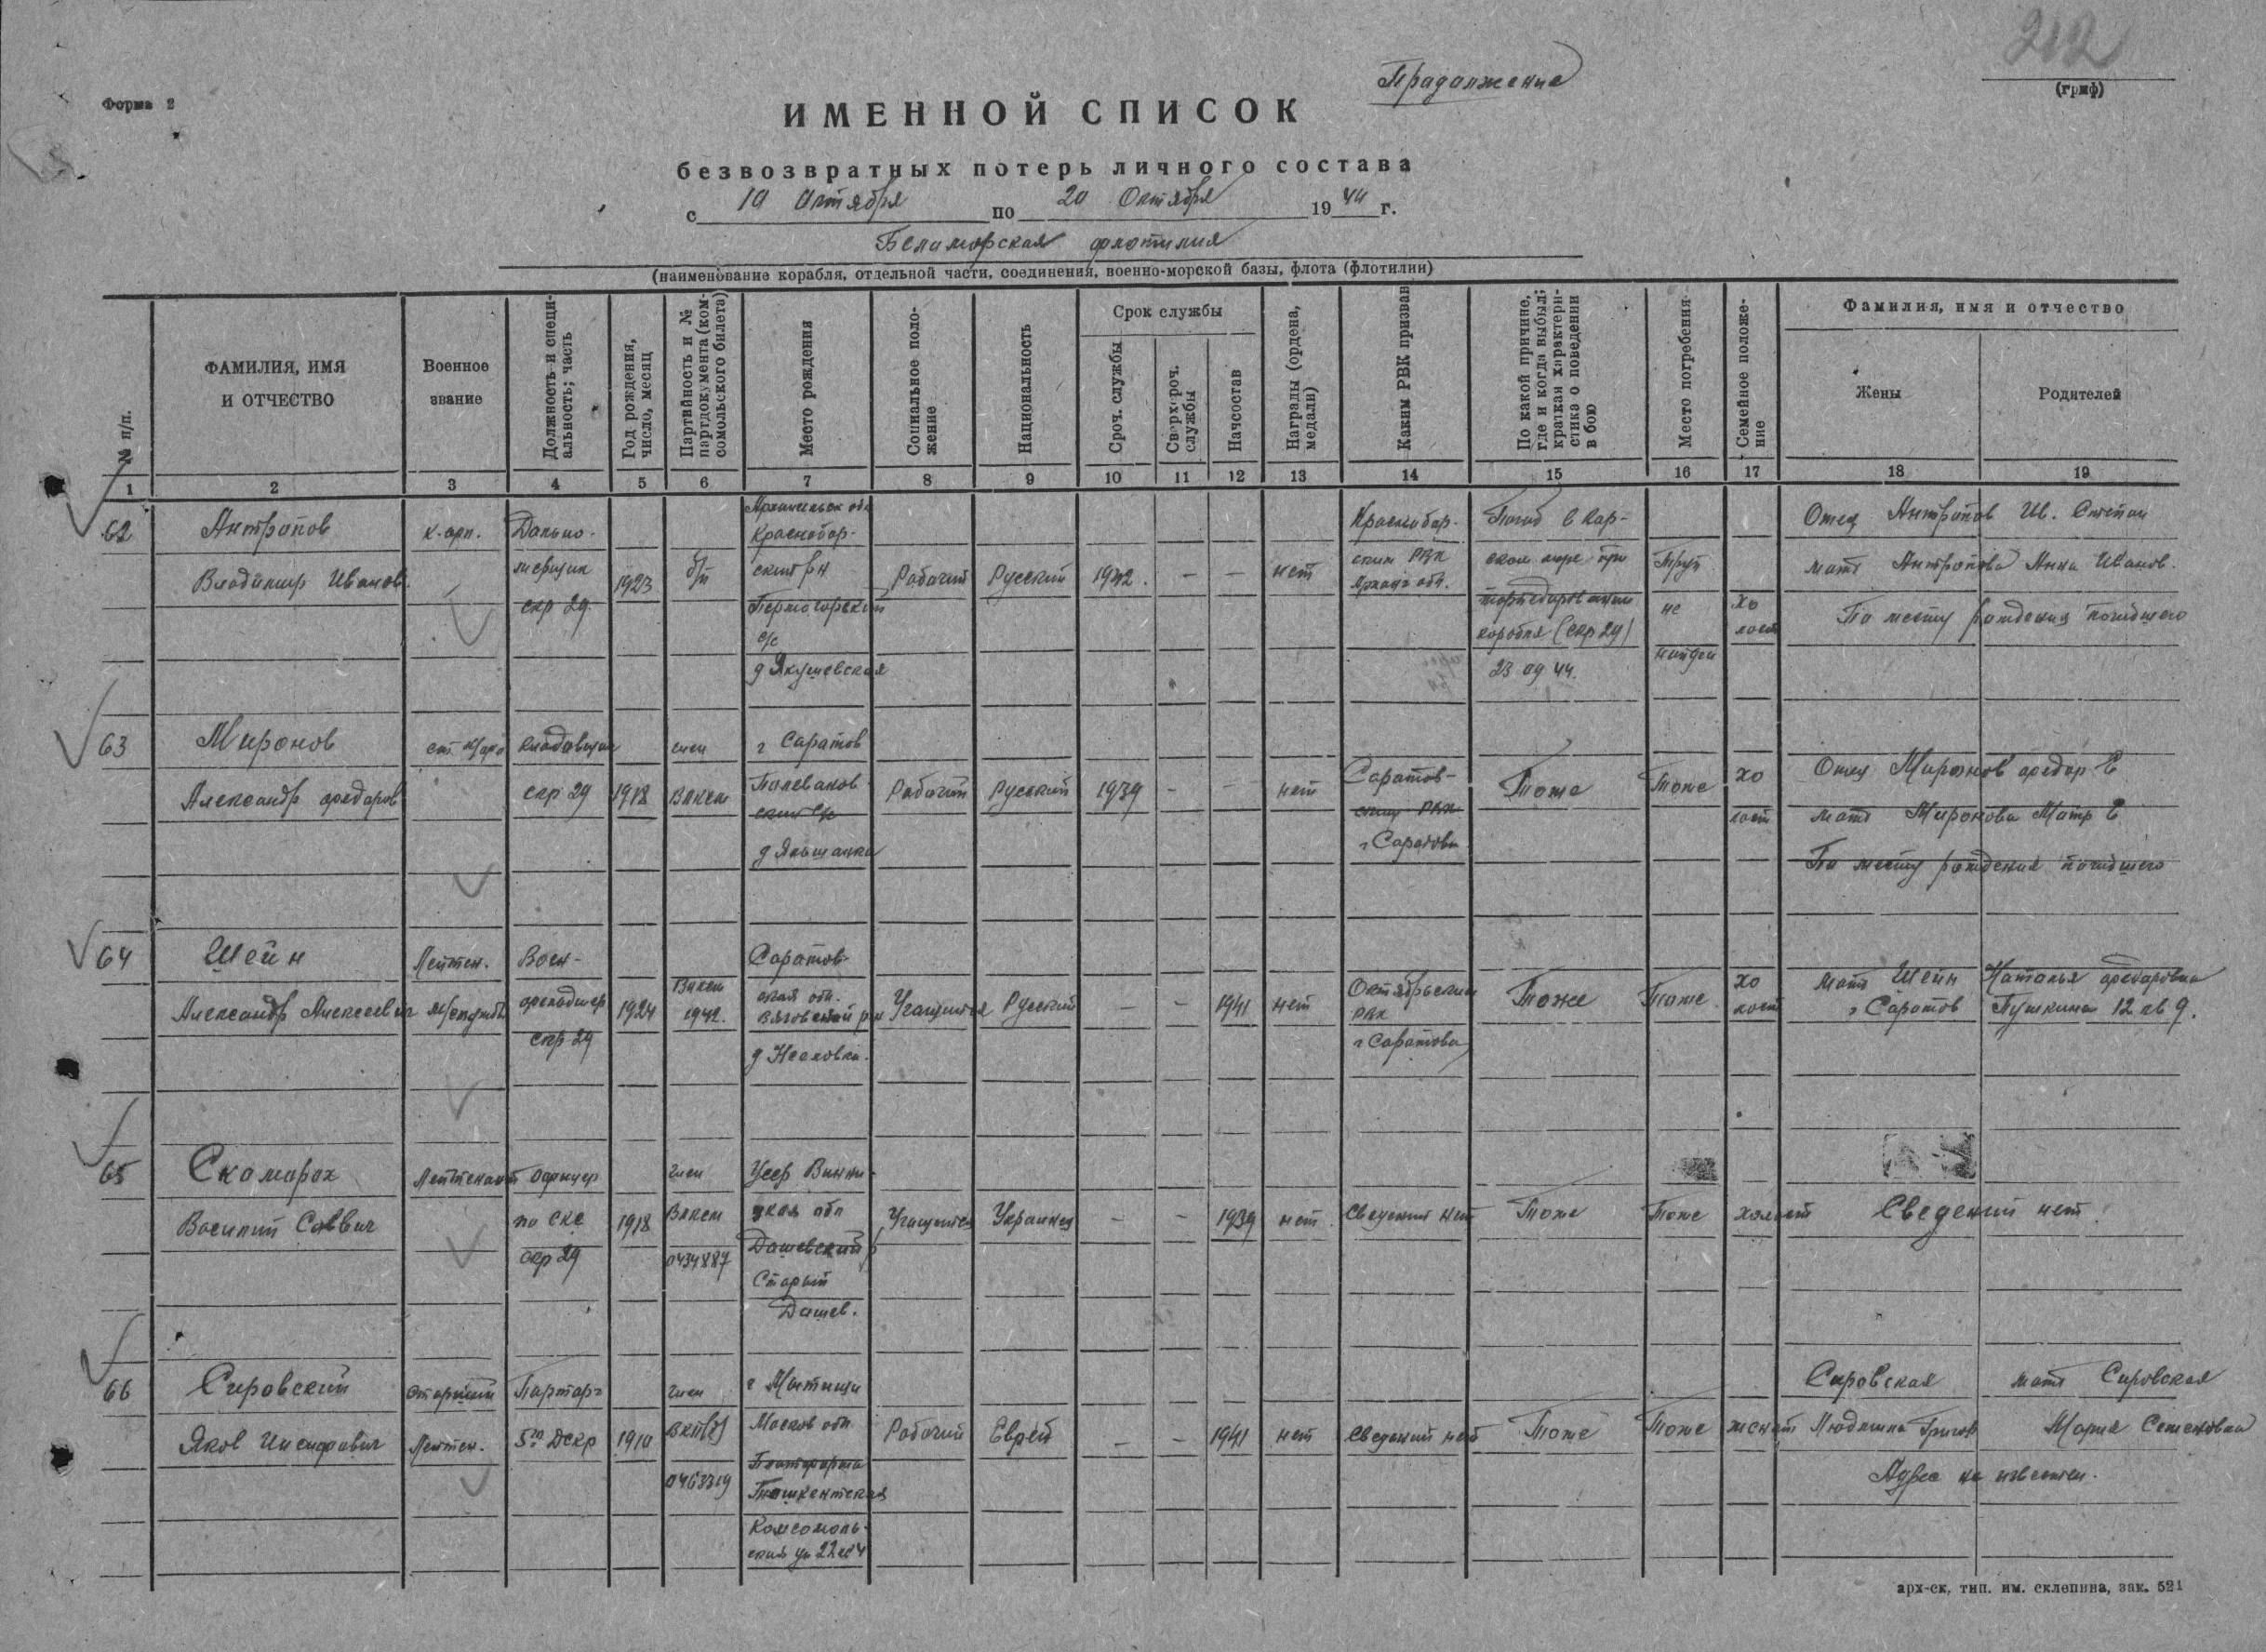 212
(гриф)
Форма 2
Прадолжение
ИМЕННОЙ СПИСОК
безвозвратных потерь личного состава
с 10 Октября по 20 Октября 1944 г.
Беламорская флотилия
(наименование корабля, отдельной части, соединения, военно-морской базы, флота (флотилии)
№ п/п.
ФАМИЛИЯ, ИМЯ
И ОТЧЕСТВО
Военное
звание
Должность и специ-
альность; часть
Год рождения,
число, месяц
Партийность и №
партдокумента (ком-
сомольского билета)
Место рождения
Социальное поло-
жение
Национальность
Срок службы
Сроч. службы
Сверхсроч.
службы
Начсостав
Награды (ордена,
медали)
Каким РВК призван
По какой причине,
где и когда выбыл;
краткая характери-
стика о поведении
в бою
Место погребения
Семейное положе-
ние
Фамилия, имя и отчество
Жены
Родителей
1 2 3 4 5 6 7 8 9 10 11 12 13 14 15 16 17 18 19
62
Антропов
Владимир Иванов.
Дально-
мерщик
скр 29
1923
б/п
Краснобор-
ский рн
с/с
д Якушевская
Рабочий
Русский
1942.
—
—
нет
Краснобор-
ским РВК
Погиб в Кар-
ском море при
торпедировании
корабля (скр 29)
23 09 44.
Труп
не
найден
хо
лост
Отец Антропов Ив. Степан
мать Антропова Анна Иванов.
По месту рождения погибшего
63
Миронов
Александр федоров
кладовщик
скр 29
1918
член
ВЛКСМ
г Саратов
ский с/с
Рабочий
Русский
1939
-
-
нет
Саратов-
ским РВК
г Саратова
Тоже
Тоже
хо
лост
Отец Миронов федор Е
мать Миронова Матр Е
По месту рождения погибшего
64
Шейн
Александр Алексеевич
Лейтен.
М/службы
Воен-
фельдшер
скр 29
1924
ВЛКСМ
1942.
Саратов-
ская обл.
Учащийся
Русский
—
-
1941
нет
Октябрьским
РВК
г Саратова
Тоже
Тоже
хо
лост
Мать Шейн Наталья федоровна
г Саратов Пушкина 12 кв 9.
65
Скаморох
Василий Саввич
Лейтенант
офицер
по СКС
скр 29
1918
член
ВЛКСМ
0434887
Усср Винни-
цкая обл
Дашевский р
Старый
Дашев.
Учащийся
Украинец
-
-
1939
нет
Сведений нет
Тоже
Тоже
холост
Сведений нет.
66
Сировский
Яков
Старший
Лейтен.
Парторг
5го Дскр
1910
член
ВКП(б)
0463319
г Мытищи
Москов обл
Платформа
Комсомоль-
Рабочий
Еврей
—
-
1941
нет
Сведений нет
Тоже
Тоже
женат
Сировская
Людмила Григор
мать Сировская
Мария Семеновна
Адрес не известен.
арх-ск, тип. им. склепина, зак. 521